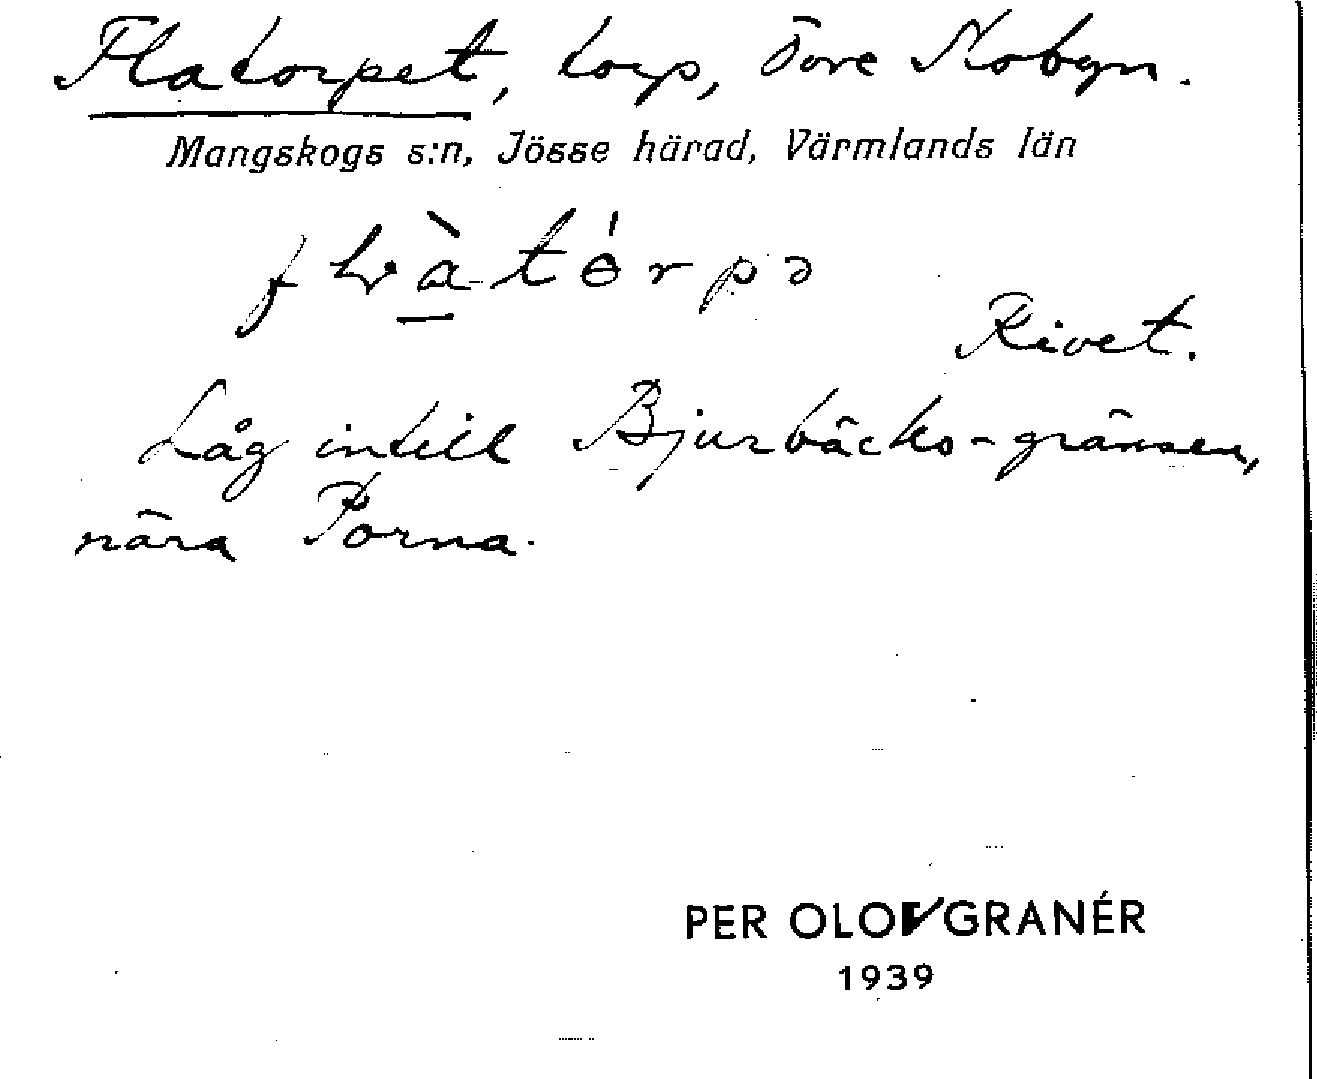 Flatorpet, torp, Övre Nobyn.
Mangskogs s:n, Jösse härad, Värmlands län
flàtórpə
Rivet.
Låg intill Bjurbäcks-gränsen,
nära Porna.
PER OLOV GRANÉR
1939